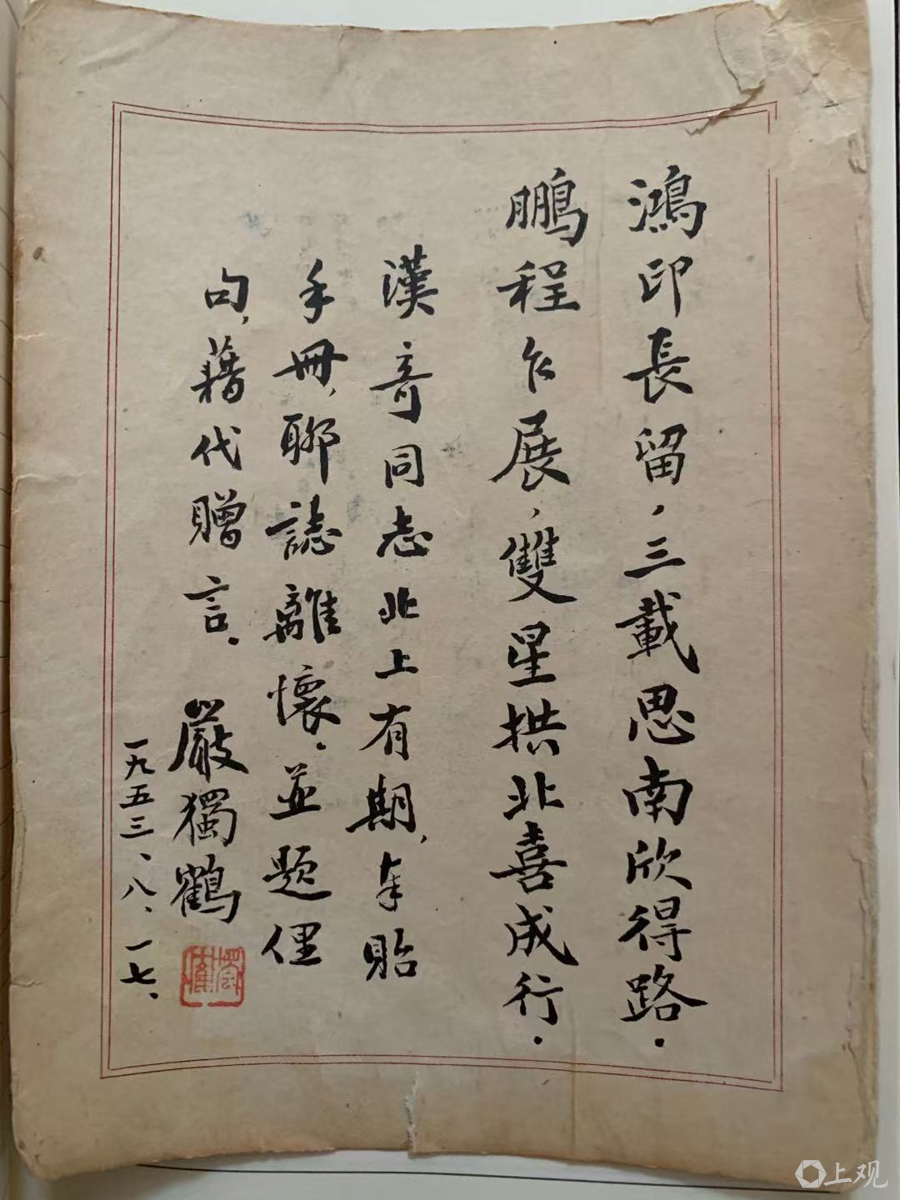 鴻印長留，三載思南欣得路．
鵬程乍展，雙星拱北喜成行．
漢奇同志北上有期，奉貽
手冊，聊誌離懷．並題俚
句，藉代贈言．
嚴獨鶴
一九五三、八、一七、
上观